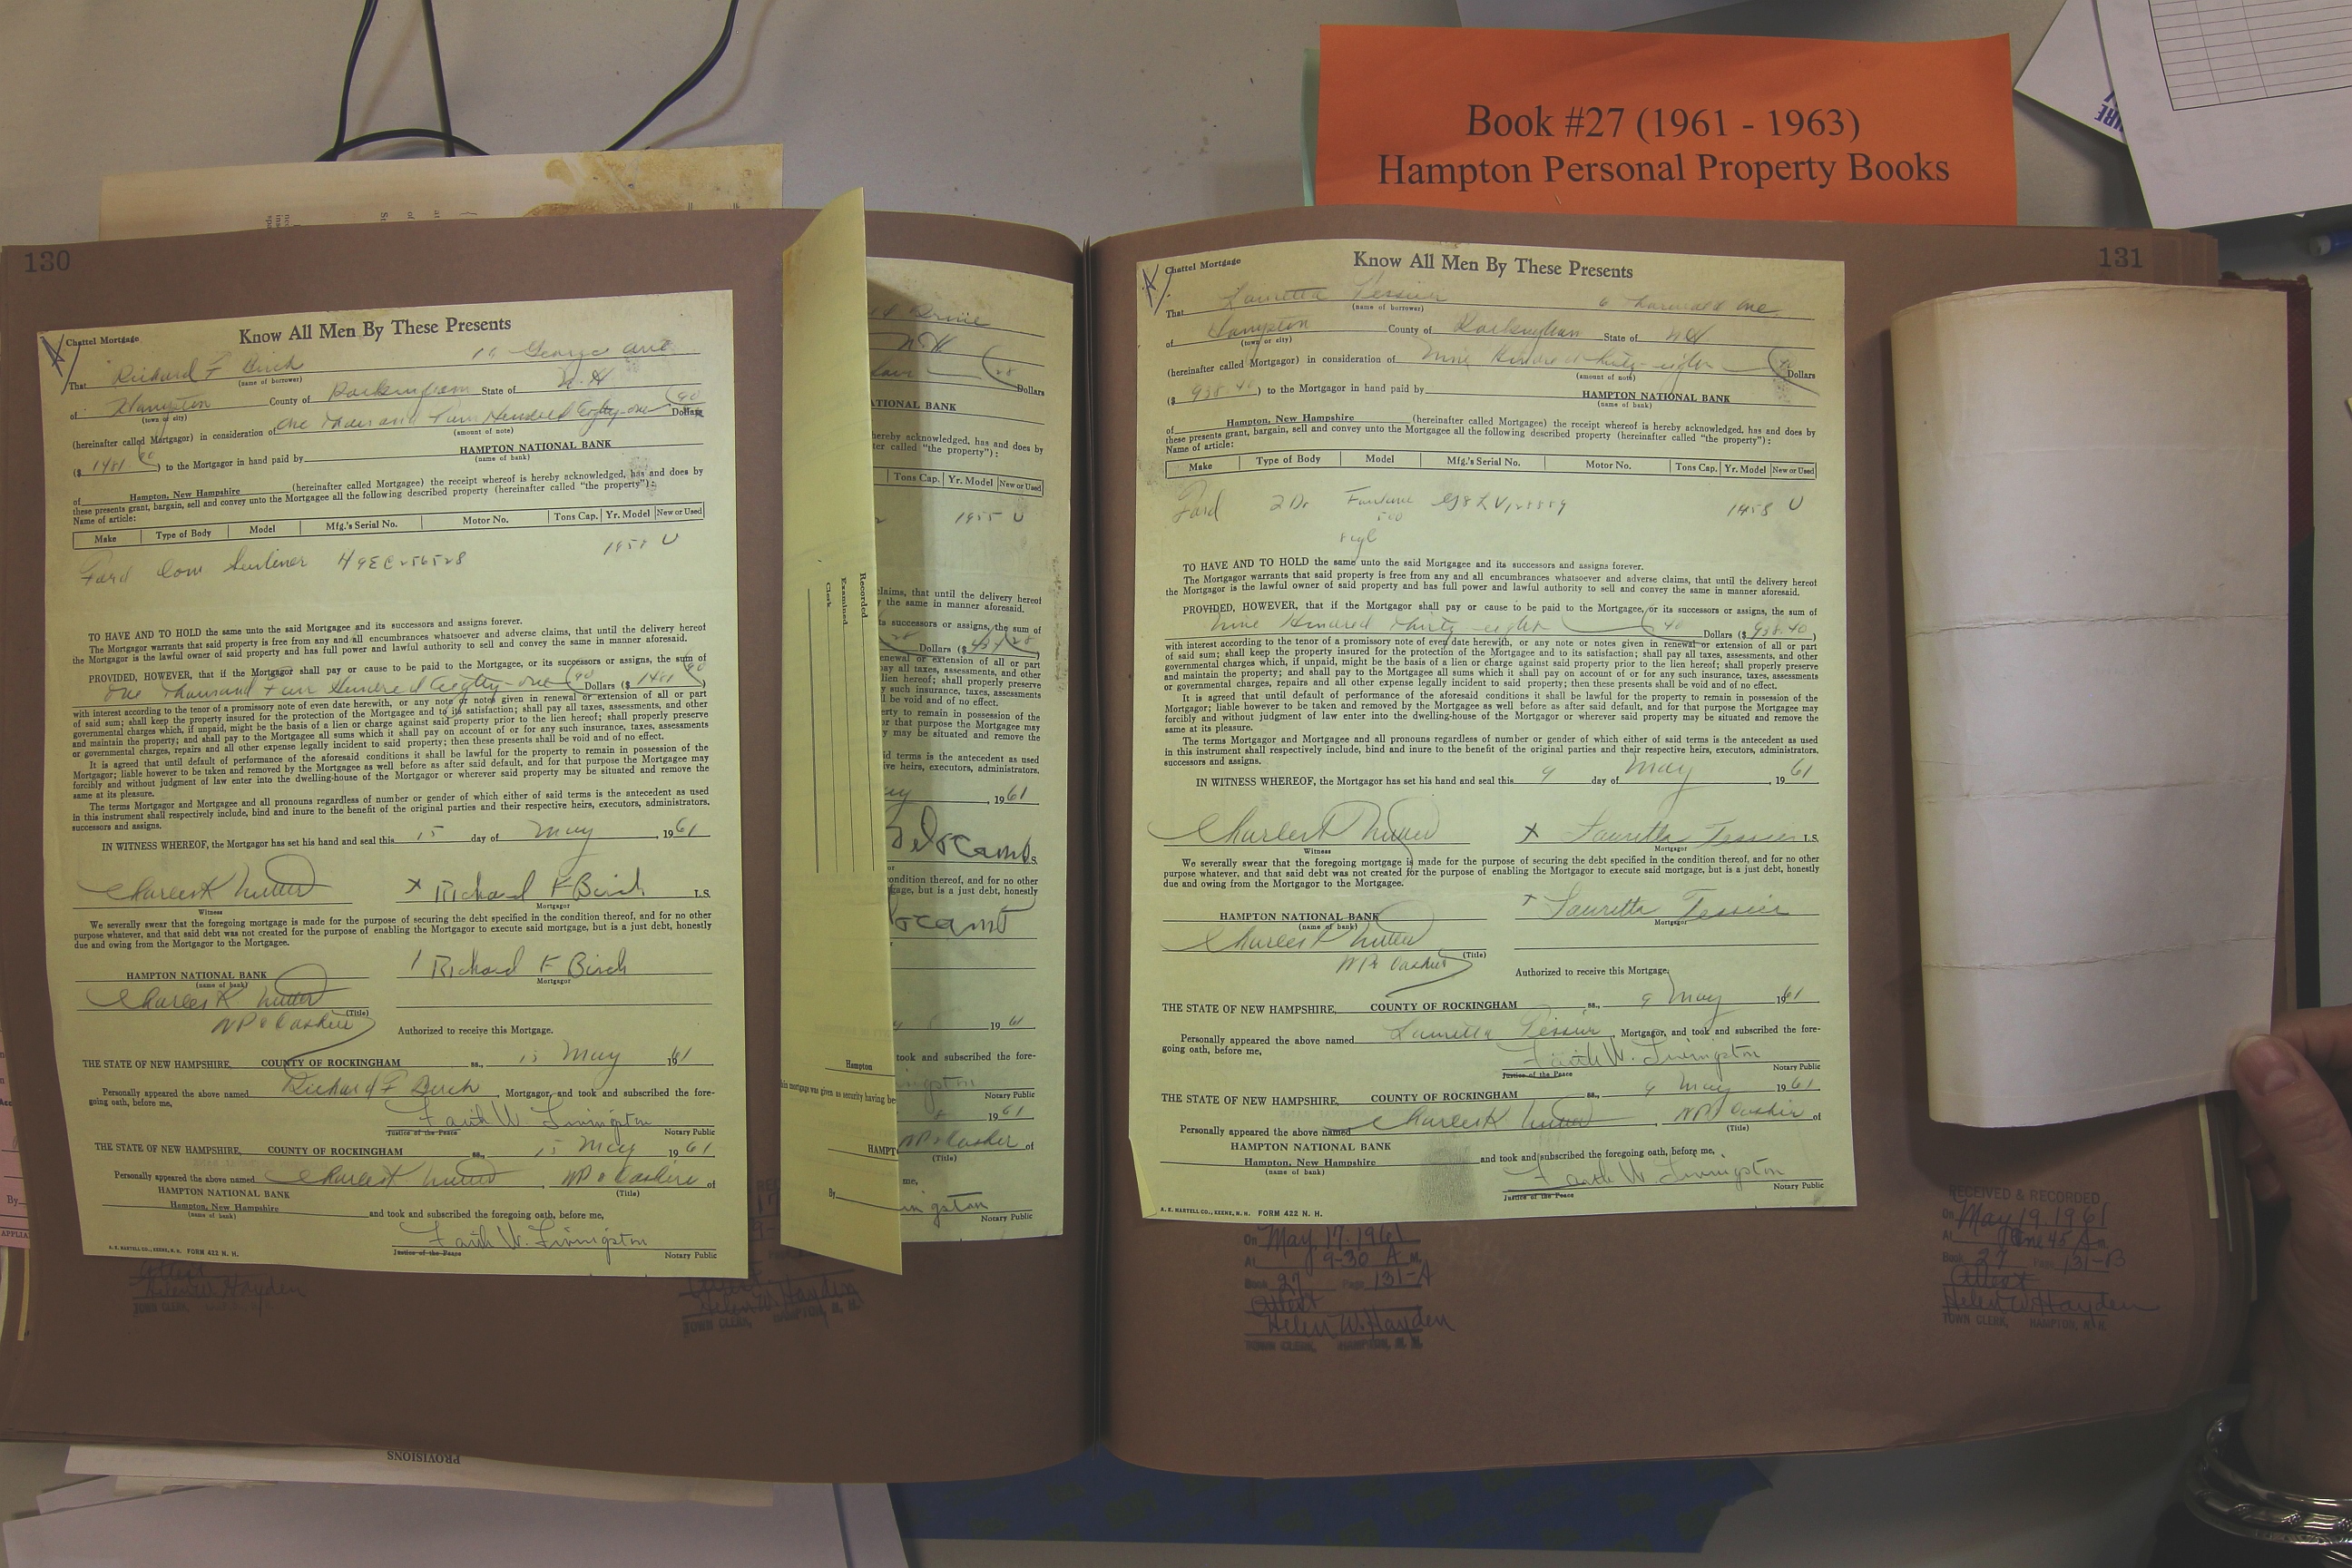 Book #27 (1961 - 1963)
Hampton Personal Property Books
130
Chattel Mortgage
Know All Men By These Presents
That Richard F Birch George Ave
(name of borrower)
of Hampton County of Rockingham State of N. H
(town or city)
(hereinafter called Mortgagor) in consideration of One Thousand Four Hundred Eighty-one 90 Dollars
(amount of note)
($ 1481.90 ) to the Mortgagor in hand paid by HAMPTON NATIONAL BANK
(name of bank)
of Hampton, New Hampshire (hereinafter called Mortgagee) the receipt whereof is hereby acknowledged, has and does by
these presents grant, bargain, sell and convey unto the Mortgagee all the following described property (hereinafter called "the property"):
Name of article:
Make Type of Body Model Mfg.'s Serial No. Motor No. Tons Cap. Yr. Model New or Used
Ford Conv Sunliner U
TO HAVE AND TO HOLD the same unto the said Mortgagee and its successors and assigns forever.
The Mortgagor warrants that said property is free from any and all encumbrances whatsoever and adverse claims, that until the delivery hereof
the Mortgagor is the lawful owner of said property and has full power and lawful authority to sell and convey the same in manner aforesaid.
PROVIDED, HOWEVER, that if the Mortgagor shall pay or cause to be paid to the Mortgagee, or its successors or assigns, the sum of
One Thousand Four Hundred Eighty-one 90 Dollars ($ 1481 90 )
with interest according to the tenor of a promissory note of even date herewith, or any note or notes given in renewal or extension of all or part
of said sum; shall keep the property insured for the protection of the Mortgagee and to its satisfaction; shall pay all taxes, assessments, and other
governmental charges which, if unpaid, might be the basis of a lien or charge against said property prior to the lien hereof; shall properly preserve
and maintain the property; and shall pay to the Mortgagee all sums which it shall pay on account of or for any such insurance, taxes, assessments
or governmental charges, repairs and all other expense legally incident to said property; then these presents shall be void and of no effect.
It is agreed that until default of performance of the aforesaid conditions it shall be lawful for the property to remain in possession of the
Mortgagor; liable however to be taken and removed by the Mortgagee as well before as after said default, and for that purpose the Mortgagee may
forcibly and without judgment of law enter into the dwelling-house of the Mortgagor or wherever said property may be situated and remove the
same at its pleasure.
The terms Mortgagor and Mortgagee and all pronouns regardless of number or gender of which either of said terms is the antecedent as used
in this instrument shall respectively include, bind and inure to the benefit of the original parties and their respective heirs, executors, administrators,
successors and assigns.
IN WITNESS WHEREOF, the Mortgagor has set his hand and seal this 15 day of May , 1961
x Richard F Birch L.S.
Witness Mortgagor
We severally swear that the foregoing mortgage is made for the purpose of securing the debt specified in the condition thereof, and for no other
purpose whatever, and that said debt was not created for the purpose of enabling the Mortgagor to execute said mortgage, but is a just debt, honestly
due and owing from the Mortgagor to the Mortgagee.
HAMPTON NATIONAL BANK Richard F Birch
(name of bank) Mortgagor
VP & Cashier (Title)
Authorized to receive this Mortgage.
THE STATE OF NEW HAMPSHIRE, COUNTY OF ROCKINGHAM ss., 15 May 1961
Personally appeared the above named Richard F Birch , Mortgagor, and took and subscribed the fore-
going oath, before me, Faith W. Livingston
Justice of the Peace Notary Public
THE STATE OF NEW HAMPSHIRE, COUNTY OF ROCKINGHAM ss., 15 May 1961
Personally appeared the above named , VP & Cashier of
HAMPTON NATIONAL BANK (Title)
Hampton, New Hampshire and took and subscribed the foregoing oath, before me,
(name of bank) Faith W. Livingston
Justice of the Peace Notary Public
A. E. MARTELL CO., KEENE, N. H. FORM 422 N. H.
Attest
Helen W. Hayden
TOWN CLERK,
Recorded
Examined
Clerk
Hampton
his mortgage was given as security having be
HAMPT
By
Drive
N. H.
28
Dollars
ATIONAL BANK
hereby acknowledged, has and does by
ter called "the property"):
Tons Cap. Yr. Model New or Used
1955 U
claims, that until the delivery hereof
y the same in manner aforesaid.
ts successors or assigns, the sum of
Dollars ($
renewal or extension of all or part
pay all taxes, assessments, and other
lien hereof; shall properly preserve
y such insurance, taxes, assessments
l be void and of no effect.
erty to remain in possession of the
r that purpose the Mortgagee may
y may be situated and remove the
id terms is the antecedent as used
ive heirs, executors, administrators,
, 1961
ondition thereof, and for no other
gage, but is a just debt, honestly
1961
took and subscribed the fore-
Notary Public
1961
VP & Cashier of
(Title)
me,
ingston
Notary Public
Attest
Helen W. Hayden
TOWN CLERK, HAMPTON, N. H.
131
Chattel Mortgage
Know All Men By These Presents
That Lauretta Tessier 6 Ave
(name of borrower)
of Hampton County of Rockingham State of NH
(town or city)
(hereinafter called Mortgagor) in consideration of Nine Hundred thirty-eight 40 Dollars
(amount of note)
($ 938.40 ) to the Mortgagor in hand paid by HAMPTON NATIONAL BANK
(name of bank)
of Hampton, New Hampshire (hereinafter called Mortgagee) the receipt whereof is hereby acknowledged, has and does by
these presents grant, bargain, sell and convey unto the Mortgagee all the following described property (hereinafter called "the property"):
Name of article:
Make Type of Body Model Mfg.'s Serial No. Motor No. Tons Cap. Yr. Model New or Used
Ford 2 Dr Fairlane 1958 U
500
8 cyl
TO HAVE AND TO HOLD the same unto the said Mortgagee and its successors and assigns forever.
The Mortgagor warrants that said property is free from any and all encumbrances whatsoever and adverse claims, that until the delivery hereof
the Mortgagor is the lawful owner of said property and has full power and lawful authority to sell and convey the same in manner aforesaid.
PROVIDED, HOWEVER, that if the Mortgagor shall pay or cause to be paid to the Mortgagee, or its successors or assigns, the sum of
Nine Hundred Thirty-eight 40 Dollars ($ 938.40 )
with interest according to the tenor of a promissory note of even date herewith, or any note or notes given in renewal or extension of all or part
of said sum; shall keep the property insured for the protection of the Mortgagee and to its satisfaction; shall pay all taxes, assessments, and other
governmental charges which, if unpaid, might be the basis of a lien or charge against said property prior to the lien hereof; shall properly preserve
and maintain the property; and shall pay to the Mortgagee all sums which it shall pay on account of or for any such insurance, taxes, assessments
or governmental charges, repairs and all other expense legally incident to said property; then these presents shall be void and of no effect.
It is agreed that until default of performance of the aforesaid conditions it shall be lawful for the property to remain in possession of the
Mortgagor; liable however to be taken and removed by the Mortgagee as well before as after said default, and for that purpose the Mortgagee may
forcibly and without judgment of law enter into the dwelling-house of the Mortgagor or wherever said property may be situated and remove the
same at its pleasure.
The terms Mortgagor and Mortgagee and all pronouns regardless of number or gender of which either of said terms is the antecedent as used
in this instrument shall respectively include, bind and inure to the benefit of the original parties and their respective heirs, executors, administrators.
successors and assigns.
IN WITNESS WHEREOF, the Mortgagor has set his hand and seal this 9 day of May , 1961
x Lauretta Tessier L.S.
Witness Mortgagor
We severally swear that the foregoing mortgage is made for the purpose of securing the debt specified in the condition thereof, and for no other
purpose whatever, and that said debt was not created for the purpose of enabling the Mortgagor to execute said mortgage, but is a just debt, honestly
due and owing from the Mortgagor to the Mortgagee.
HAMPTON NATIONAL BANK x Lauretta Tessier
(name of bank) Mortgagor
VP & Cashier (Title)
Authorized to receive this Mortgage.
THE STATE OF NEW HAMPSHIRE, COUNTY OF ROCKINGHAM ss., 9 May 1961
Personally appeared the above named Lauretta Tessier , Mortgagor, and took and subscribed the fore-
going oath, before me, Faith W. Livingston
Justice of the Peace Notary Public
THE STATE OF NEW HAMPSHIRE, COUNTY OF ROCKINGHAM ss., 9 May 1961
Personally appeared the above named , VP & Cashier of
HAMPTON NATIONAL BANK (Title)
Hampton, New Hampshire and took and subscribed the foregoing oath, before me,
(name of bank) Faith W. Livingston
Justice of the Peace Notary Public
A. E. MARTELL CO., KEENE, N. H. FORM 422 N. H.
On May 17, 1961
At 9-30 A M.
Book 27 Page 131-A
Attest
Helen W. Hayden
TOWN CLERK, HAMPTON, N. H.
RECEIVED & RECORDED
On May 19 1961
At
Book 27 Page 131-B
Attest
Helen W Hayden
TOWN CLERK, HAMPTON, N. H.
PROVISIONS